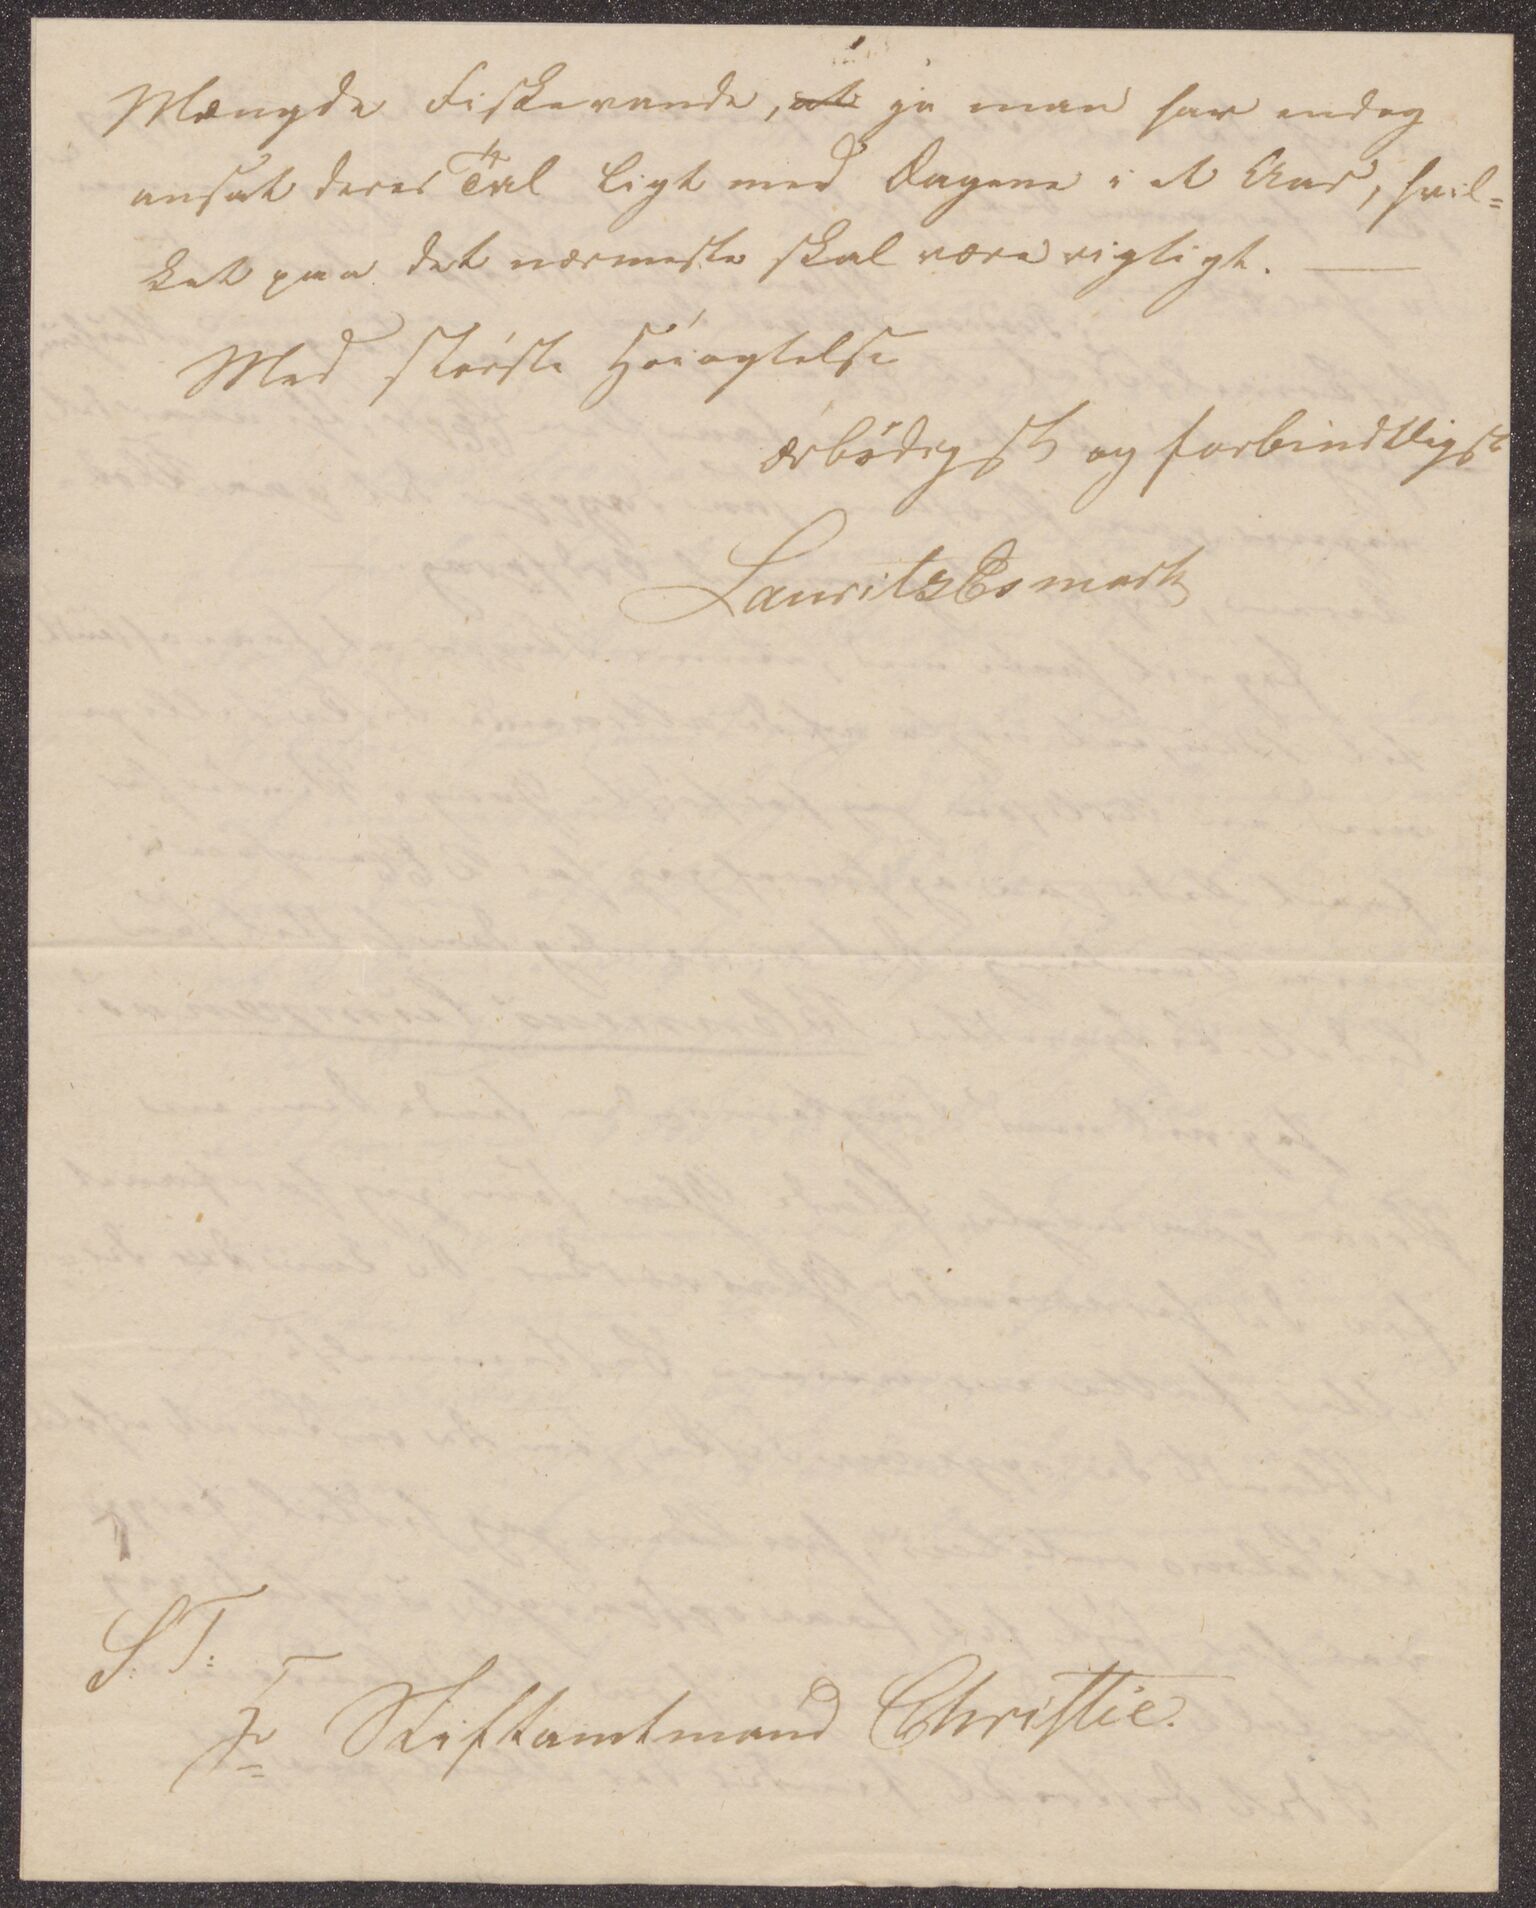 Mængde Fiskevande, at ja man har endog
ansat deres Tal ligt med Dagene i et Aar, hvil=
ket paa det nærmeste skal være rigtigt. —
Med største Høiagtelse
ærbødigst og forbindtligst
Lauritz Esmark
S. T.
Hr Stiftamtmand Christie.